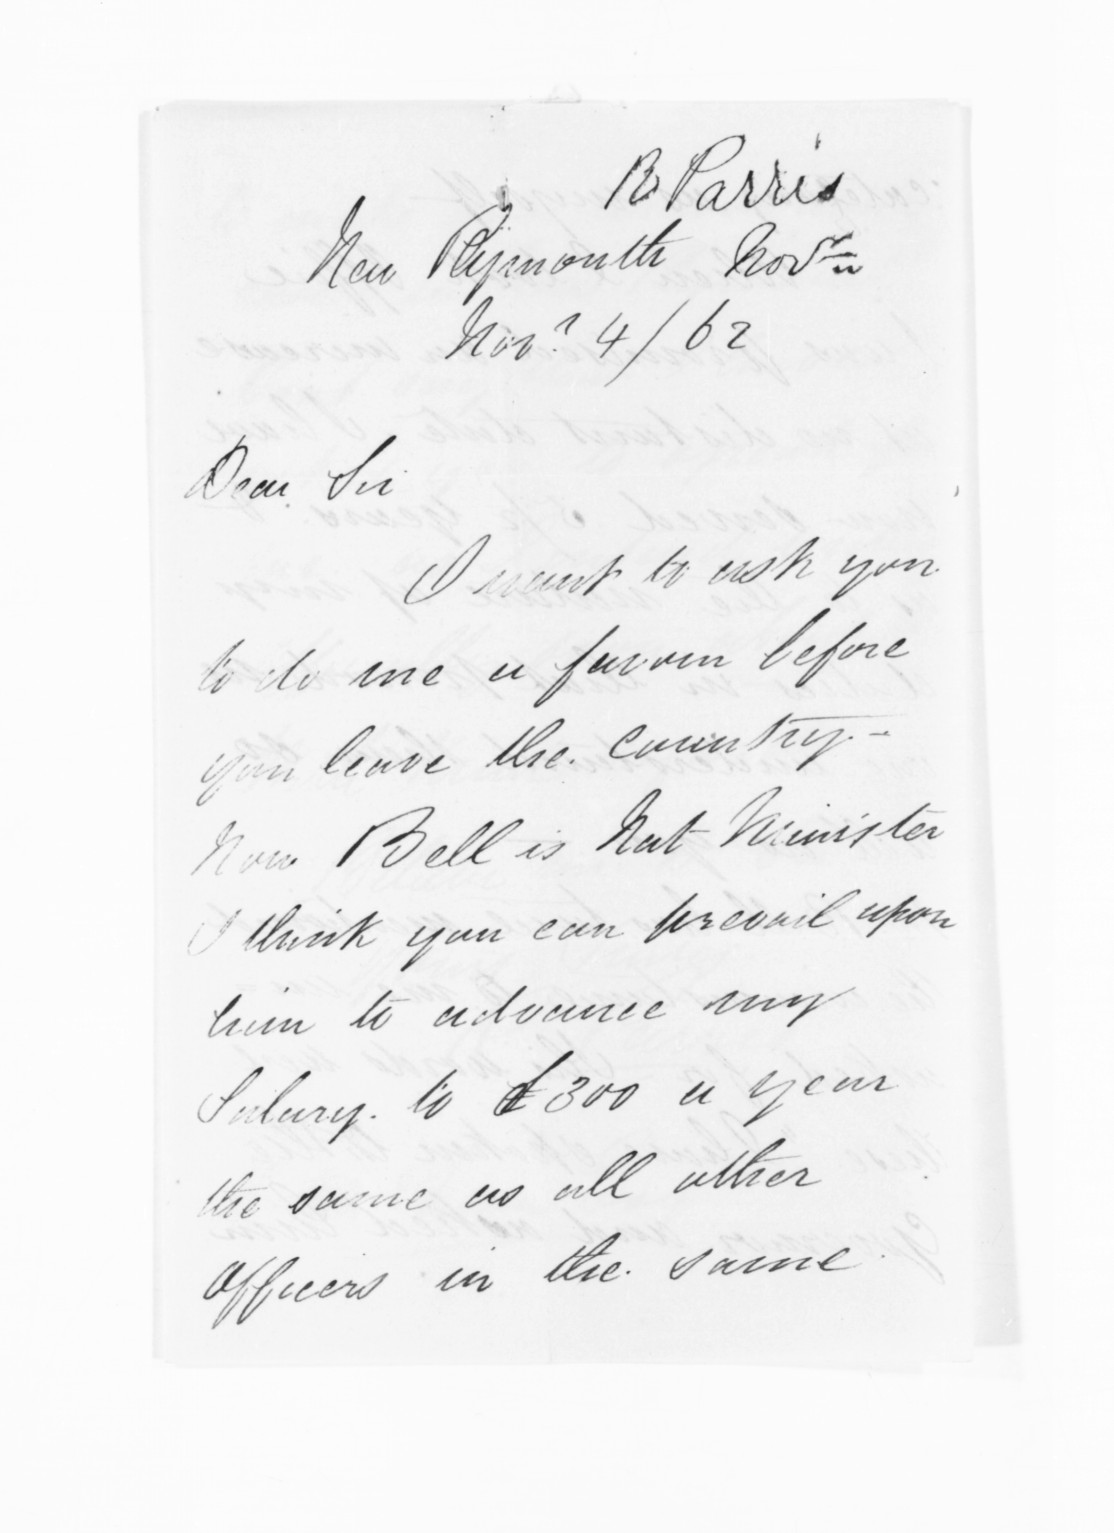 R Parris
New Plymouth
Novr. 4/62
Dear Sir
I want to ask you
to do me a favour before
you leave the country. -
Now Bell is Nat Minister
I think you can prevail upon
him to advance my
Salary. to £300 a year
the same as all other
Officers in the same